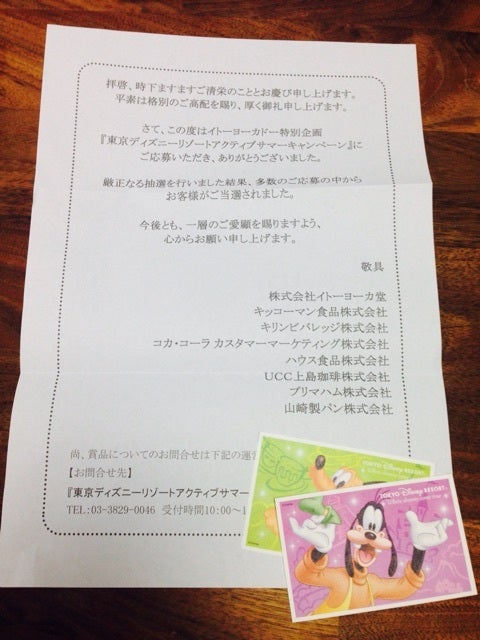 拝啓、時下ますますご清栄のこととお慶び申し上げます。
平素は格別のご高配を賜り、厚く御礼申し上げます。
さて、この度はイトーヨーカドー特別企画
『東京ディズニーリゾートアクティブサマーキャンペーン』に
ご応募いただき、ありがとうございました。
厳正なる抽選を行いました結果、多数のご応募の中から
お客様がご当選されました。
今後とも、一層のご愛顧を賜りますよう、
心からお願い申し上げます。
敬具
株式会社イトーヨーカ堂
キッコーマン食品株式会社
キリンビバレッジ株式会社
コカ・コーラ カスタマーマーケティング株式会社
ハウス食品株式会社
UCC上島珈琲株式会社
プリマハム株式会社
山崎製パン株式会社
尚、賞品についてのお問合せは下記の運営
【お問合せ先】
『東京ディズニーリゾートアクティブサマー
TEL:03-3829-0046 受付時間10:00～1
TOKYO Disney RESORT
TOKYO Disney RESORT
Where dreams come true